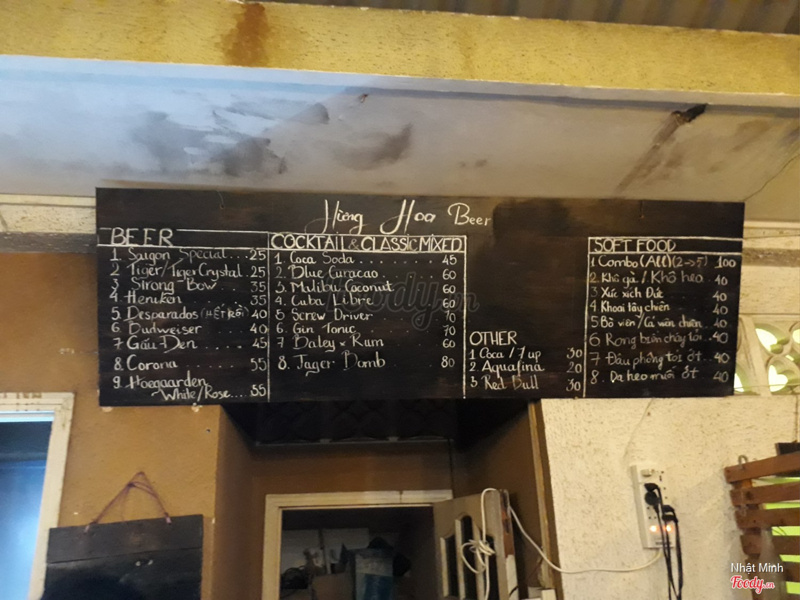 Hừng Hoa Beer
BEER
1 Saigon Special....25
2 Tiger/Tiger Crystal.25
3 Strong-Bow....35
4 Heniken....35
5 Desparados (HẾT RỒI) 40
6 Budweiser....40
7 Gấu Đen....45
8. Corona....55
9 Hoegaarden
White/Rose....55
COCKTAIL & CLASSIC MIXED
1 Coca Soda....45
2. Blue Curacao....60
3. Malibu Coconut....60
4. Cuba/Libre....60
5 Screw Driver....70
6 Gin Tonic....70
7 Baley × Rum 60
8. Jager Bomb....80
OTHER
1 Coca / 7 up 30
2. Aquafina 20
3 Red Bull 30
SOFT FOOD
1 Combo (All)(2→5) 100
2. Khô gà / Khô heo..40
3 Xúc xích Đức....40
4 Khoai lây chiên....40
5 Bò viên/Cá viên chiên..40
6 Rong biển cháy tỏi..40
7 Đậu phộng tỏi ớt..40
8. Da heo muối ớt 40
Foody.vn
Nhật Minh
Foody.vn